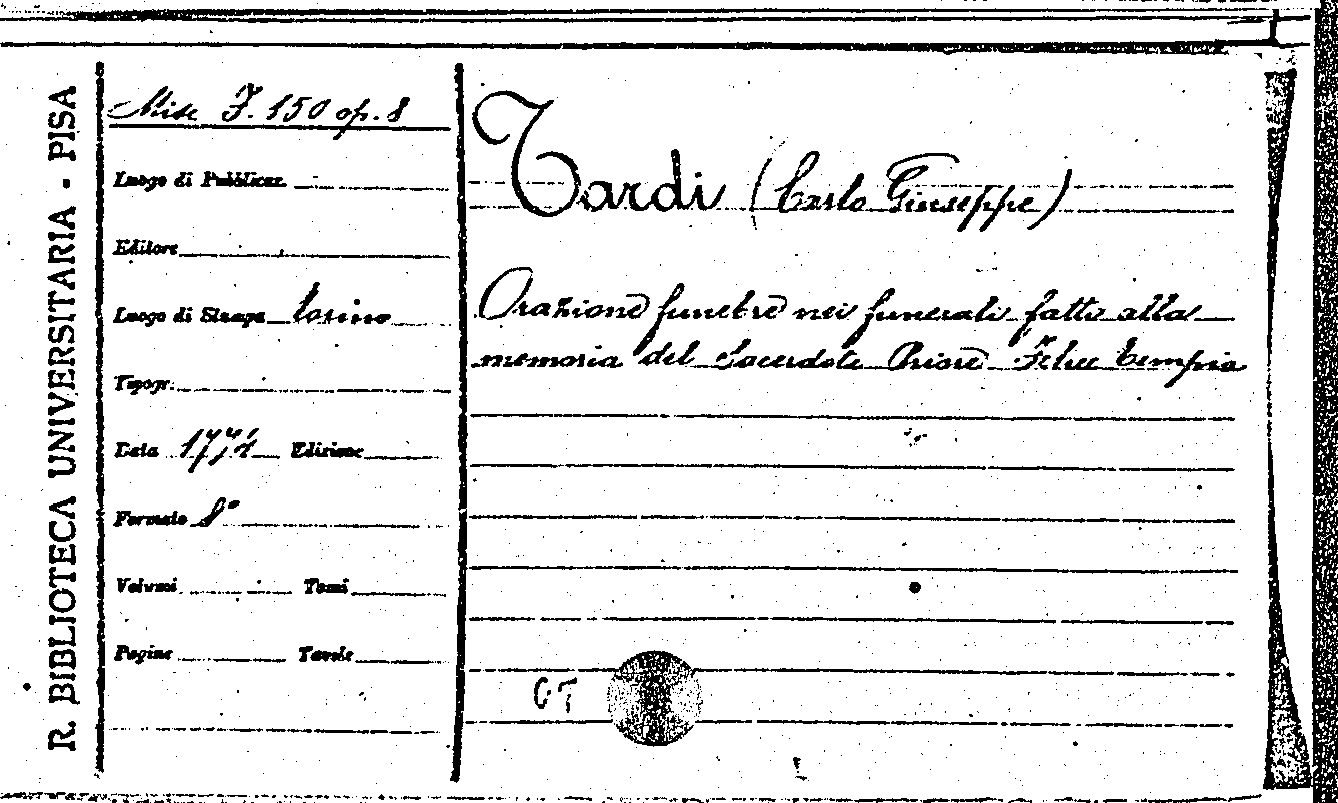 R. BIBLIOTECA UNIVERSITARIA - PISA
Misc F. 150 op. 8
Luogo di Pubblicaz.
Editore
Luogo di Stampa Torino
Tipogr.
Data 1774 Edizione
Formato 8°
Volumi Tomi
Pagine Tavole
Tardi (Carlo Giuseppe)
Orazione funebre nei funerali fatti alla
memoria del Sacerdote Priore Felice Tempia
GT